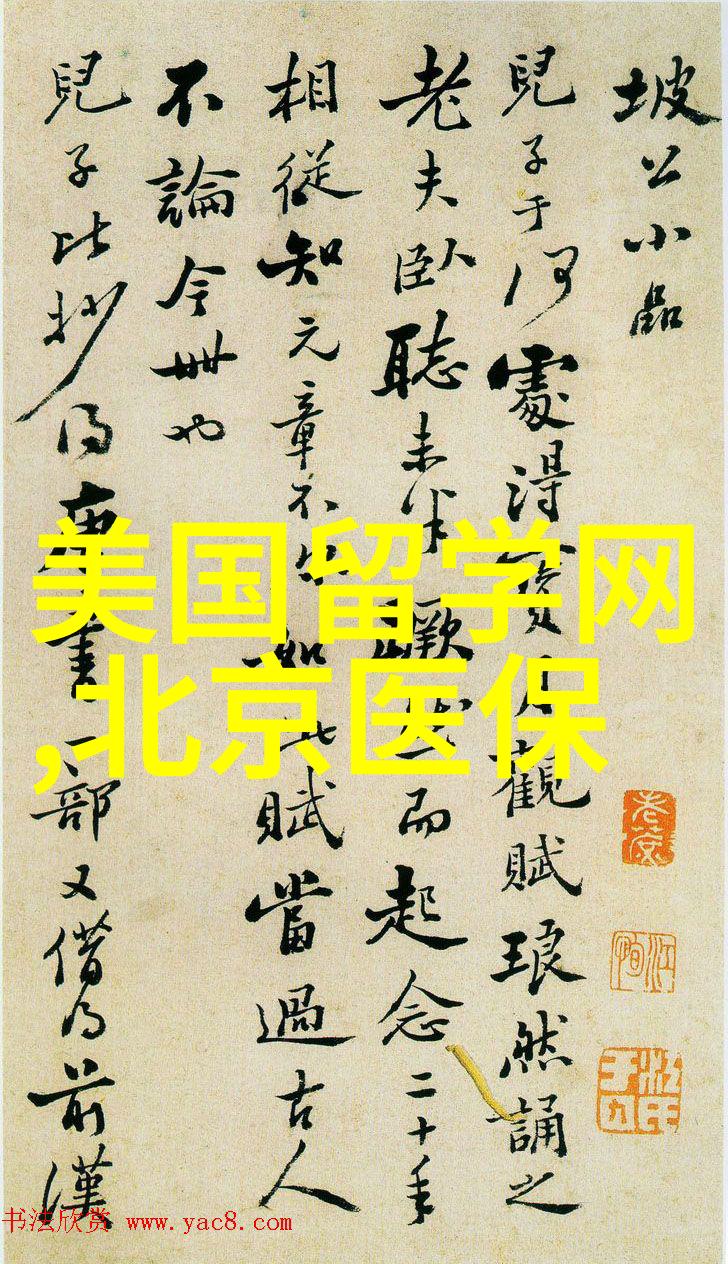 坡公小品
兒子于何處得寶月觀賦琅然誦之
老夫臥聽未半蹶然而起念二十年
相從知元章不盡如此賦當過古人
不論今世也
兒子比抄得唐書一部又借得前漢
美国留学网
,北京医保
书法欣赏 www.yac8.com